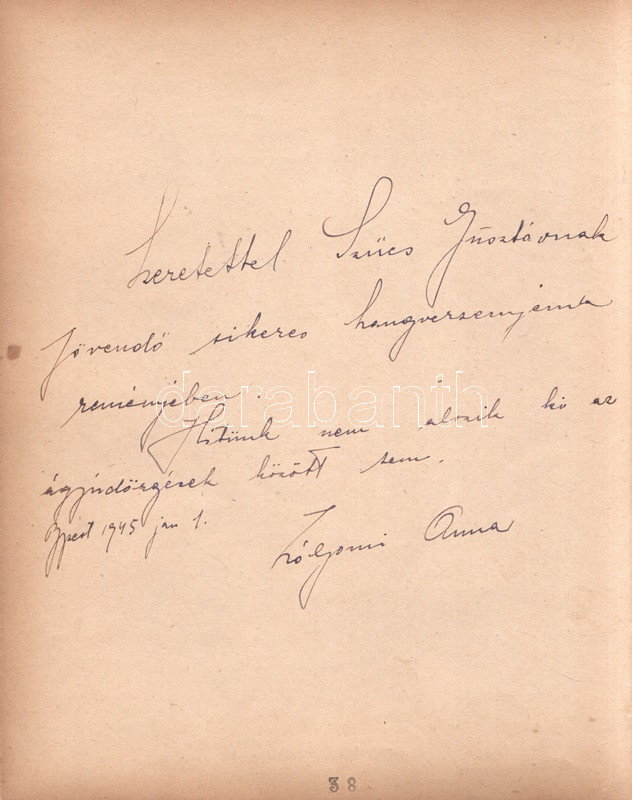 Szeretettel Szűcs Gusztávnak
Jövendő sikeres hangversenyeink
reményében.
darabanth
Hitünk nem alszik ki az
ágyúdörgések között sem.
Bpest 1945 jan 1.
Zólyomi Anna
38